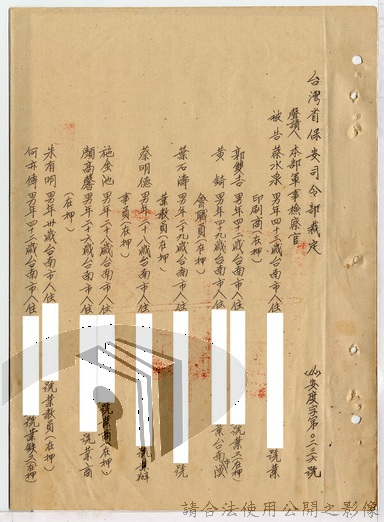 台灣省保安司令部裁定
安度字第〇二三六號
聲請人 本部軍事檢察官
被告 蔡水泉 男年 歲台南市人住 號業
印刷商(在押)
郭雙吉 男年四二歲台南市人住 號業工(在押)
黃錡 男年四十九歲台南市人住 業台南漁
會職員(在押)
葉石濤 男年二十九歲台南市人住 號
業教員(在押)
蔡明德 男年二十八歲台南市人住 號業辦
事員(在押)
施金池 男年二十 歲台南市人住 號業商(在押)
顏高馨 男年二十六歲台南市人住 號業商
(在押)
朱有明 男年卅歲台南市人住 號業教員(在押)
何亦傳 男年三十三歲台南市人住 號業 (在押)
請合法使用公開之影像